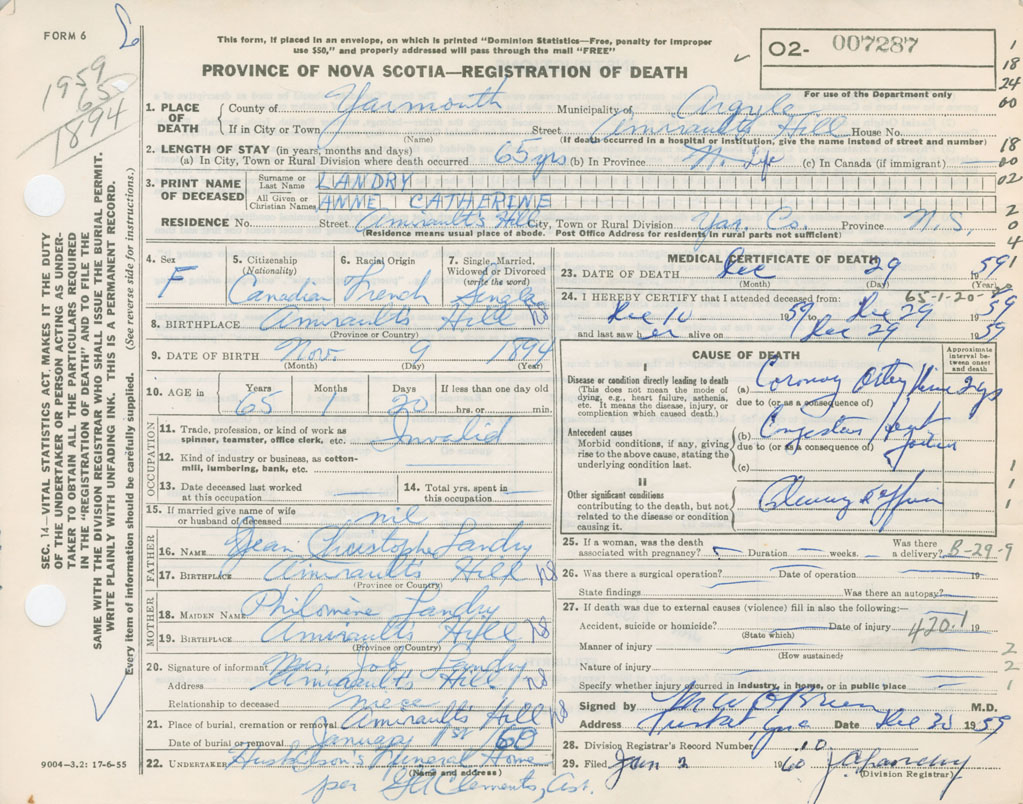 FORM 6
This form, if placed in an envelope, on which is printed "Dominion Statistics—Free, penalty for improper
use $50," and properly addressed will pass through the mail "FREE"
PROVINCE OF NOVA SCOTIA—REGISTRATION OF DEATH
O2- 007287
For use of the Department only
1959
65
1894
1
18
24
00
18
00
02
2
0
4
1
1. PLACE OF DEATH
County of Yarmouth Municipality of Argyle
If in City or Town Street Amirault's Hill House No.
(Name) (If death occurred in a hospital or institution, give the name instead of street and number)
2. LENGTH OF STAY (in years, months and days)
(a) In City, Town or Rural Division where death occurred 65 yrs (b) In Province (c) In Canada (if immigrant) —
3. PRINT NAME OF DECEASED
Surname or Last Name LANDRY
All Given or Christian Names ANNE CATHERINE
RESIDENCE No. Street Amirault's Hill City, Town or Rural Division Yar. Co. Province N.S.
(Residence means usual place of abode. Post Office Address for residents in rural parts not sufficient)
4. Sex F
5. Citizenship (Nationality) Canadian
6. Racial Origin French
7. Single, Married, Widowed or Divorced (write the word) Single
8. BIRTHPLACE Amiraults Hill NS
(Province or Country)
9. DATE OF BIRTH Nov 9 1894
(Month) (Day) (Year)
10. AGE in Years Months Days If less than one day old
65 1 20 hrs. or min.
OCCUPATION
11. Trade, profession, or kind of work as spinner, teamster, office clerk, etc. Invalid
12. Kind of industry or business, as cotton-mill, lumbering, bank, etc. —
13. Date deceased last worked at this occupation —
14. Total yrs. spent in this occupation —
15. If married give name of wife or husband of deceased nil
FATHER
16. NAME Jean Christophe Landry
17. BIRTHPLACE Amiraults Hill NS
(Province or Country)
MOTHER
18. MAIDEN NAME Philomène Landry
19. BIRTHPLACE Amiraults Hill NS
(Province or Country)
20. Signature of informant Mrs. Job Landry
Address Amiraults Hill NS
Relationship to deceased niece
21. Place of burial, cremation or removal Amiraults Hill NS
Date of burial or removal January 1st 60
22. UNDERTAKER Funeral Home
(Name and address)
per Clements, Ast.
9004-3.2: 17-6-55
MEDICAL CERTIFICATE OF DEATH
23. DATE OF DEATH Dec 29 1959
(Month) (Day) (Year)
65-1-20
24. I HEREBY CERTIFY that I attended deceased from:
Dec 10 1959 to Dec 29 1959
and last saw her alive on Dec 29 1959
CAUSE OF DEATH
Approximate interval between onset and death
I
Disease or condition directly leading to death
(This does not mean the mode of dying, e.g., heart failure, asthenia, etc. It means the disease, injury, or complication which caused death.)
(a) Coronary
due to (or as a consequence of)
Antecedent causes
Morbid conditions, if any, giving rise to the above cause, stating the underlying condition last.
(b) Congestive Heart
due to (or as a consequence of)
(c)
II
Other significant conditions
contributing to the death, but not related to the disease or condition causing it.
25. If a woman, was the death associated with pregnancy? Duration weeks. Was there a delivery?
B-29-9
26. Was there a surgical operation? Date of operation 19
State findings Was there an autopsy?
27. If death was due to external causes (violence) fill in also the following:—
Accident, suicide or homicide? Date of injury 19
(State which)
420.1
Manner of injury
(How sustained)
Nature of injury
Specify whether injury occurred in industry, in home, or in public place
Signed by M W O'Brien M.D.
Address Tusket, Date Dec 30 1959
28. Division Registrar's Record Number 10
29. Filed Jan 2 1960 J A Landry
(Division Registrar)
1
1
1
2
2
1
SEC. 14—VITAL STATISTICS ACT, MAKES IT THE DUTY
OF THE UNDERTAKER OR PERSON ACTING AS UNDER-
TAKER TO OBTAIN ALL THE PARTICULARS REQUIRED
IN THE "REGISTRATION OF DEATH" AND TO FILE THE
SAME WITH THE DIVISION REGISTRAR WHO SHALL ISSUE THE BURIAL PERMIT.
WRITE PLAINLY WITH UNFADING INK. THIS IS A PERMANENT RECORD.
Every item of information should be carefully supplied. (See reverse side for instructions.)